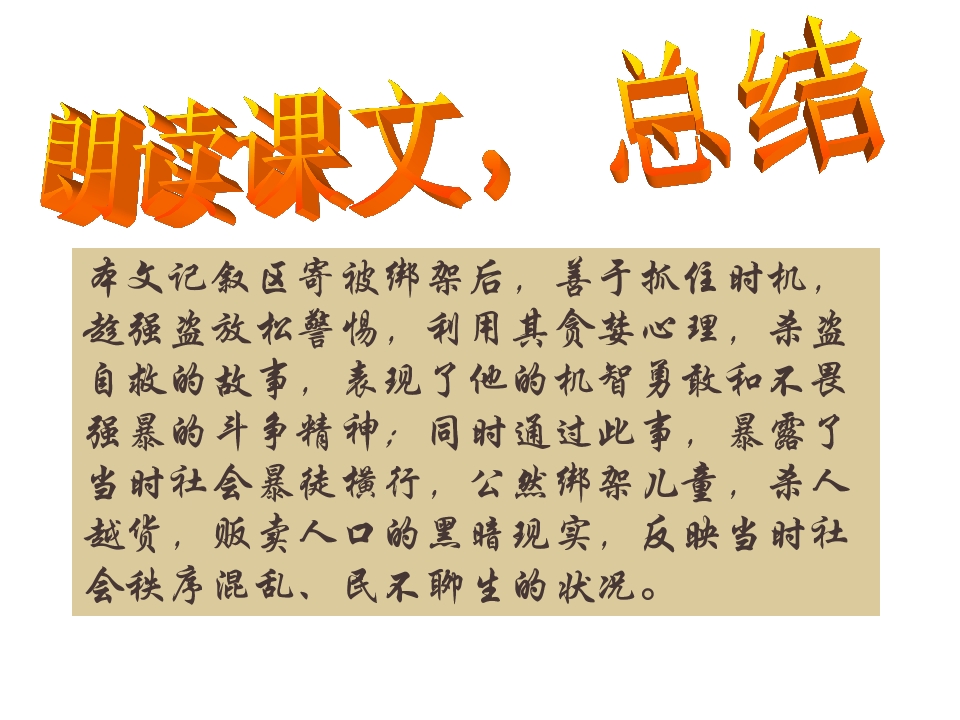 朗读课文， 总结
本文记叙区寄被绑架后，善于抓住时机，
趁强盗放松警惕，利用其贪婪心理，杀盗
自救的故事，表现了他的机智勇敢和不畏
强暴的斗争精神；同时通过此事，暴露了
当时社会暴徒横行，公然绑架儿童，杀人
越货，贩卖人口的黑暗现实，反映当时社
会秩序混乱、民不聊生的状况。